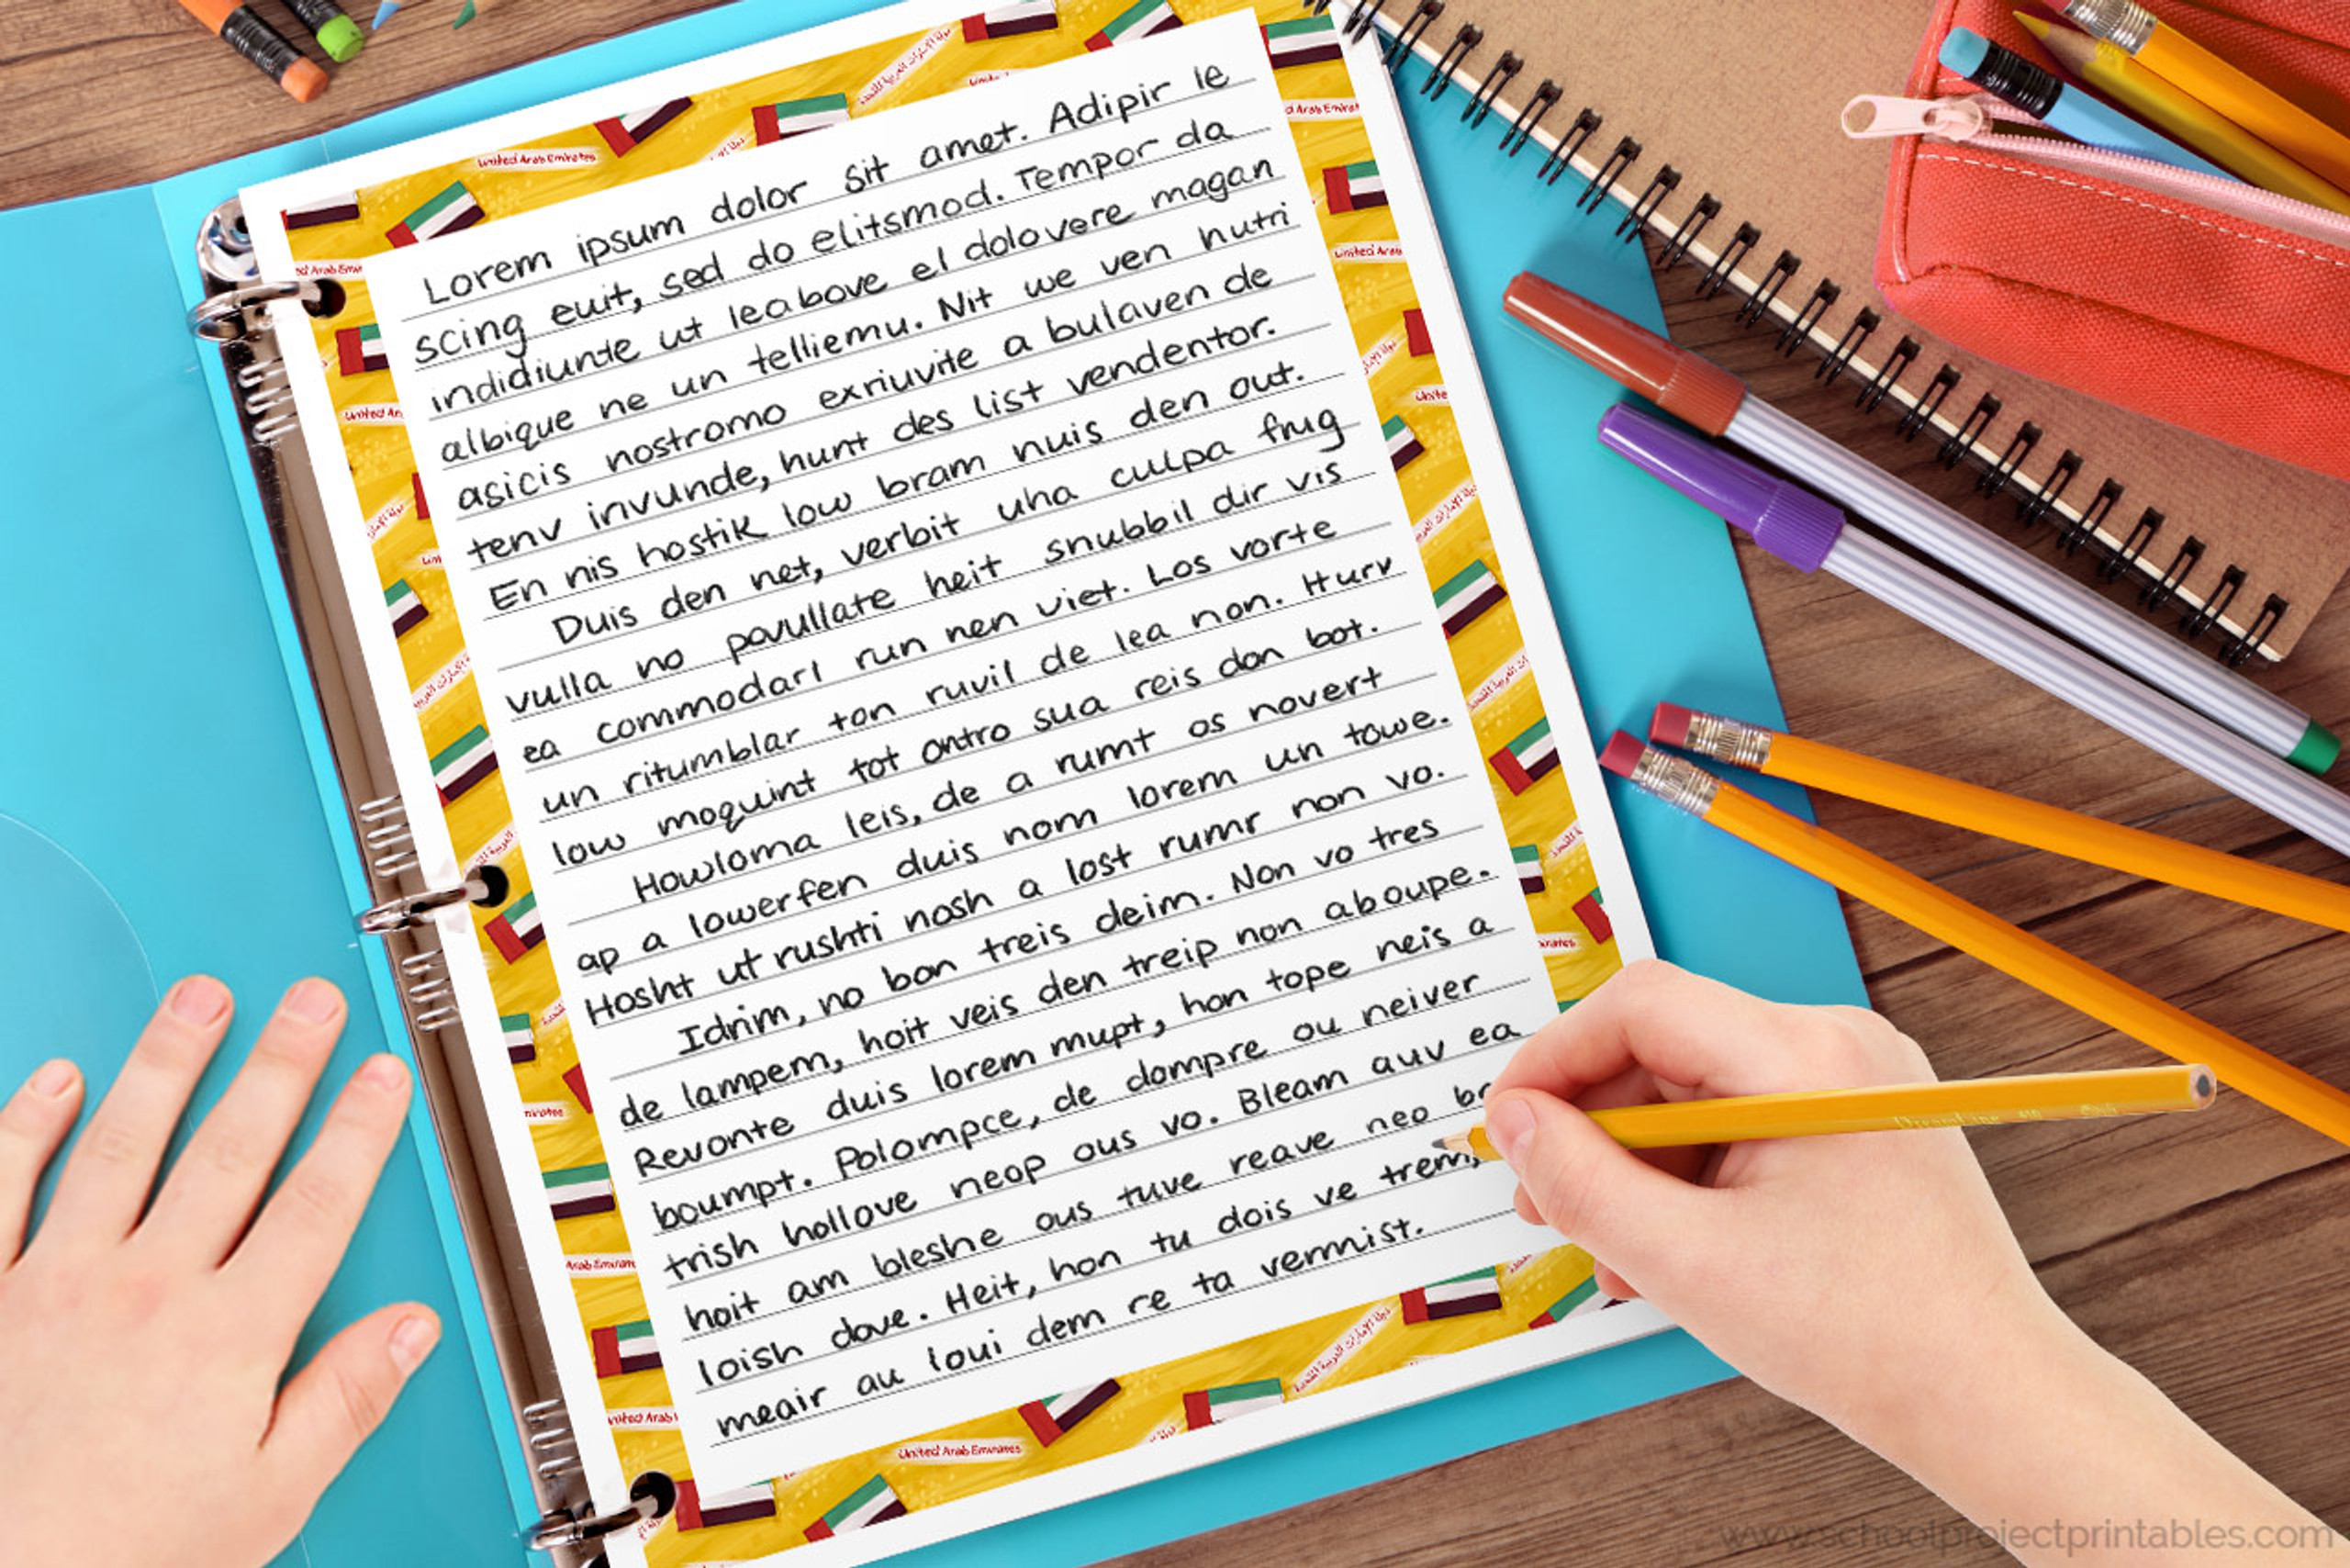 Lorem ipsum dolor sit amet. Adipir le
scing euit, sed do elitsmod. Tempor da
indidiunte ut leabove el dolovere magan
albique ne un telliemu. Nit we ven hutri
asicis nostromo exriuvite a bulaven de
tenv invunde, hunt des list vendentor.
En nis hostik low bram nuis den out.
Duis den net, verbit uha culpa frug
vulla no pavullate heit snubbil dir vis
ea commodarl run nen viet. Los vorte
un ritumblar ton ruvil de lea non. Hurv
low moquint tot ontro sua reis don bot.
Howloma leis, de a rumt os novert
ap a lowerfen duis nom lorem un towe.
Hosht ut rushti nosh a lost rumr non vo.
Idrim, no bon treis deim. Non vo tres
de lampem, hoit veis den treip non aboupe.
Revonte duis lorem mupt, hon tope neis a
boumpt. Polompce, de dompre ou neiver
trish hollove neop ous vo. Bleam auv ea
hoit am bleshe ous tuve reave neo br
loish dove. Heit, hon tu dois ve trem,
meair au loui dem re ta vermist.
United Arab Emirates
دولة الإمارات العربية المتحدة
www.schoolprojectprintables.com